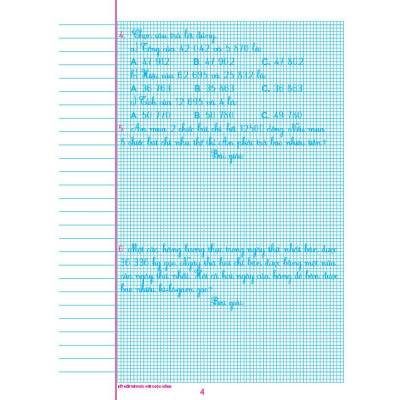 4. Chọn câu trả lời đúng.
a) Tổng của 42 042 và 5 870 là:
A. 47 912 B. 47 902 C. 47 802
b) Hiệu của 62 695 và 25 832 là:
A. 36 763 B. 35 863 C. 36 863
c) Tích của 12 695 và 4 là:
A. 50 770 B. 50 780 C. 49 780
5. An mua 2 chiếc bút chì hết 12500 đồng. Nếu mua
8 chiếc bút chì như thế thì An phải trả bao nhiêu tiền?
Bài giải:
6. Một cửa hàng lương thực trong ngày thứ nhất bán được
36 336 kg gạo. Ngày thứ hai chỉ bán được bằng một nửa
của ngày thứ nhất. Hỏi cả hai ngày cửa hàng đó bán được
bao nhiêu ki-lô-gam gạo?
Bài giải:
KẾT NỐI TRI THỨC VỚI CUỘC SỐNG
4